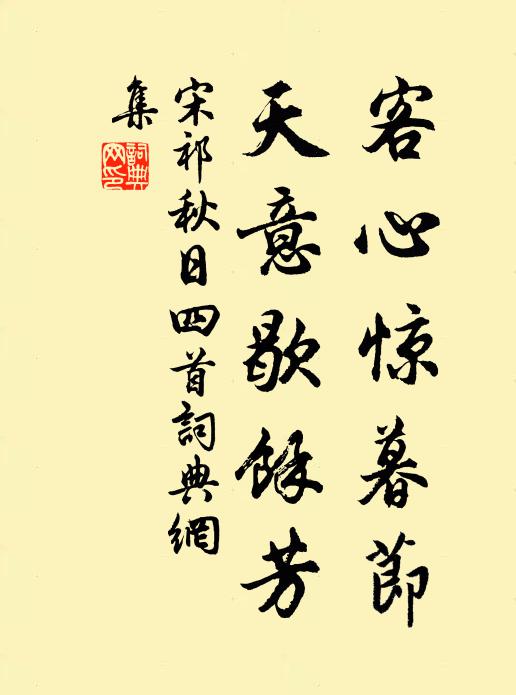 客心惊暮节
天意歇餘芳
宋祁秋日四首詞典網
集
詞典網印